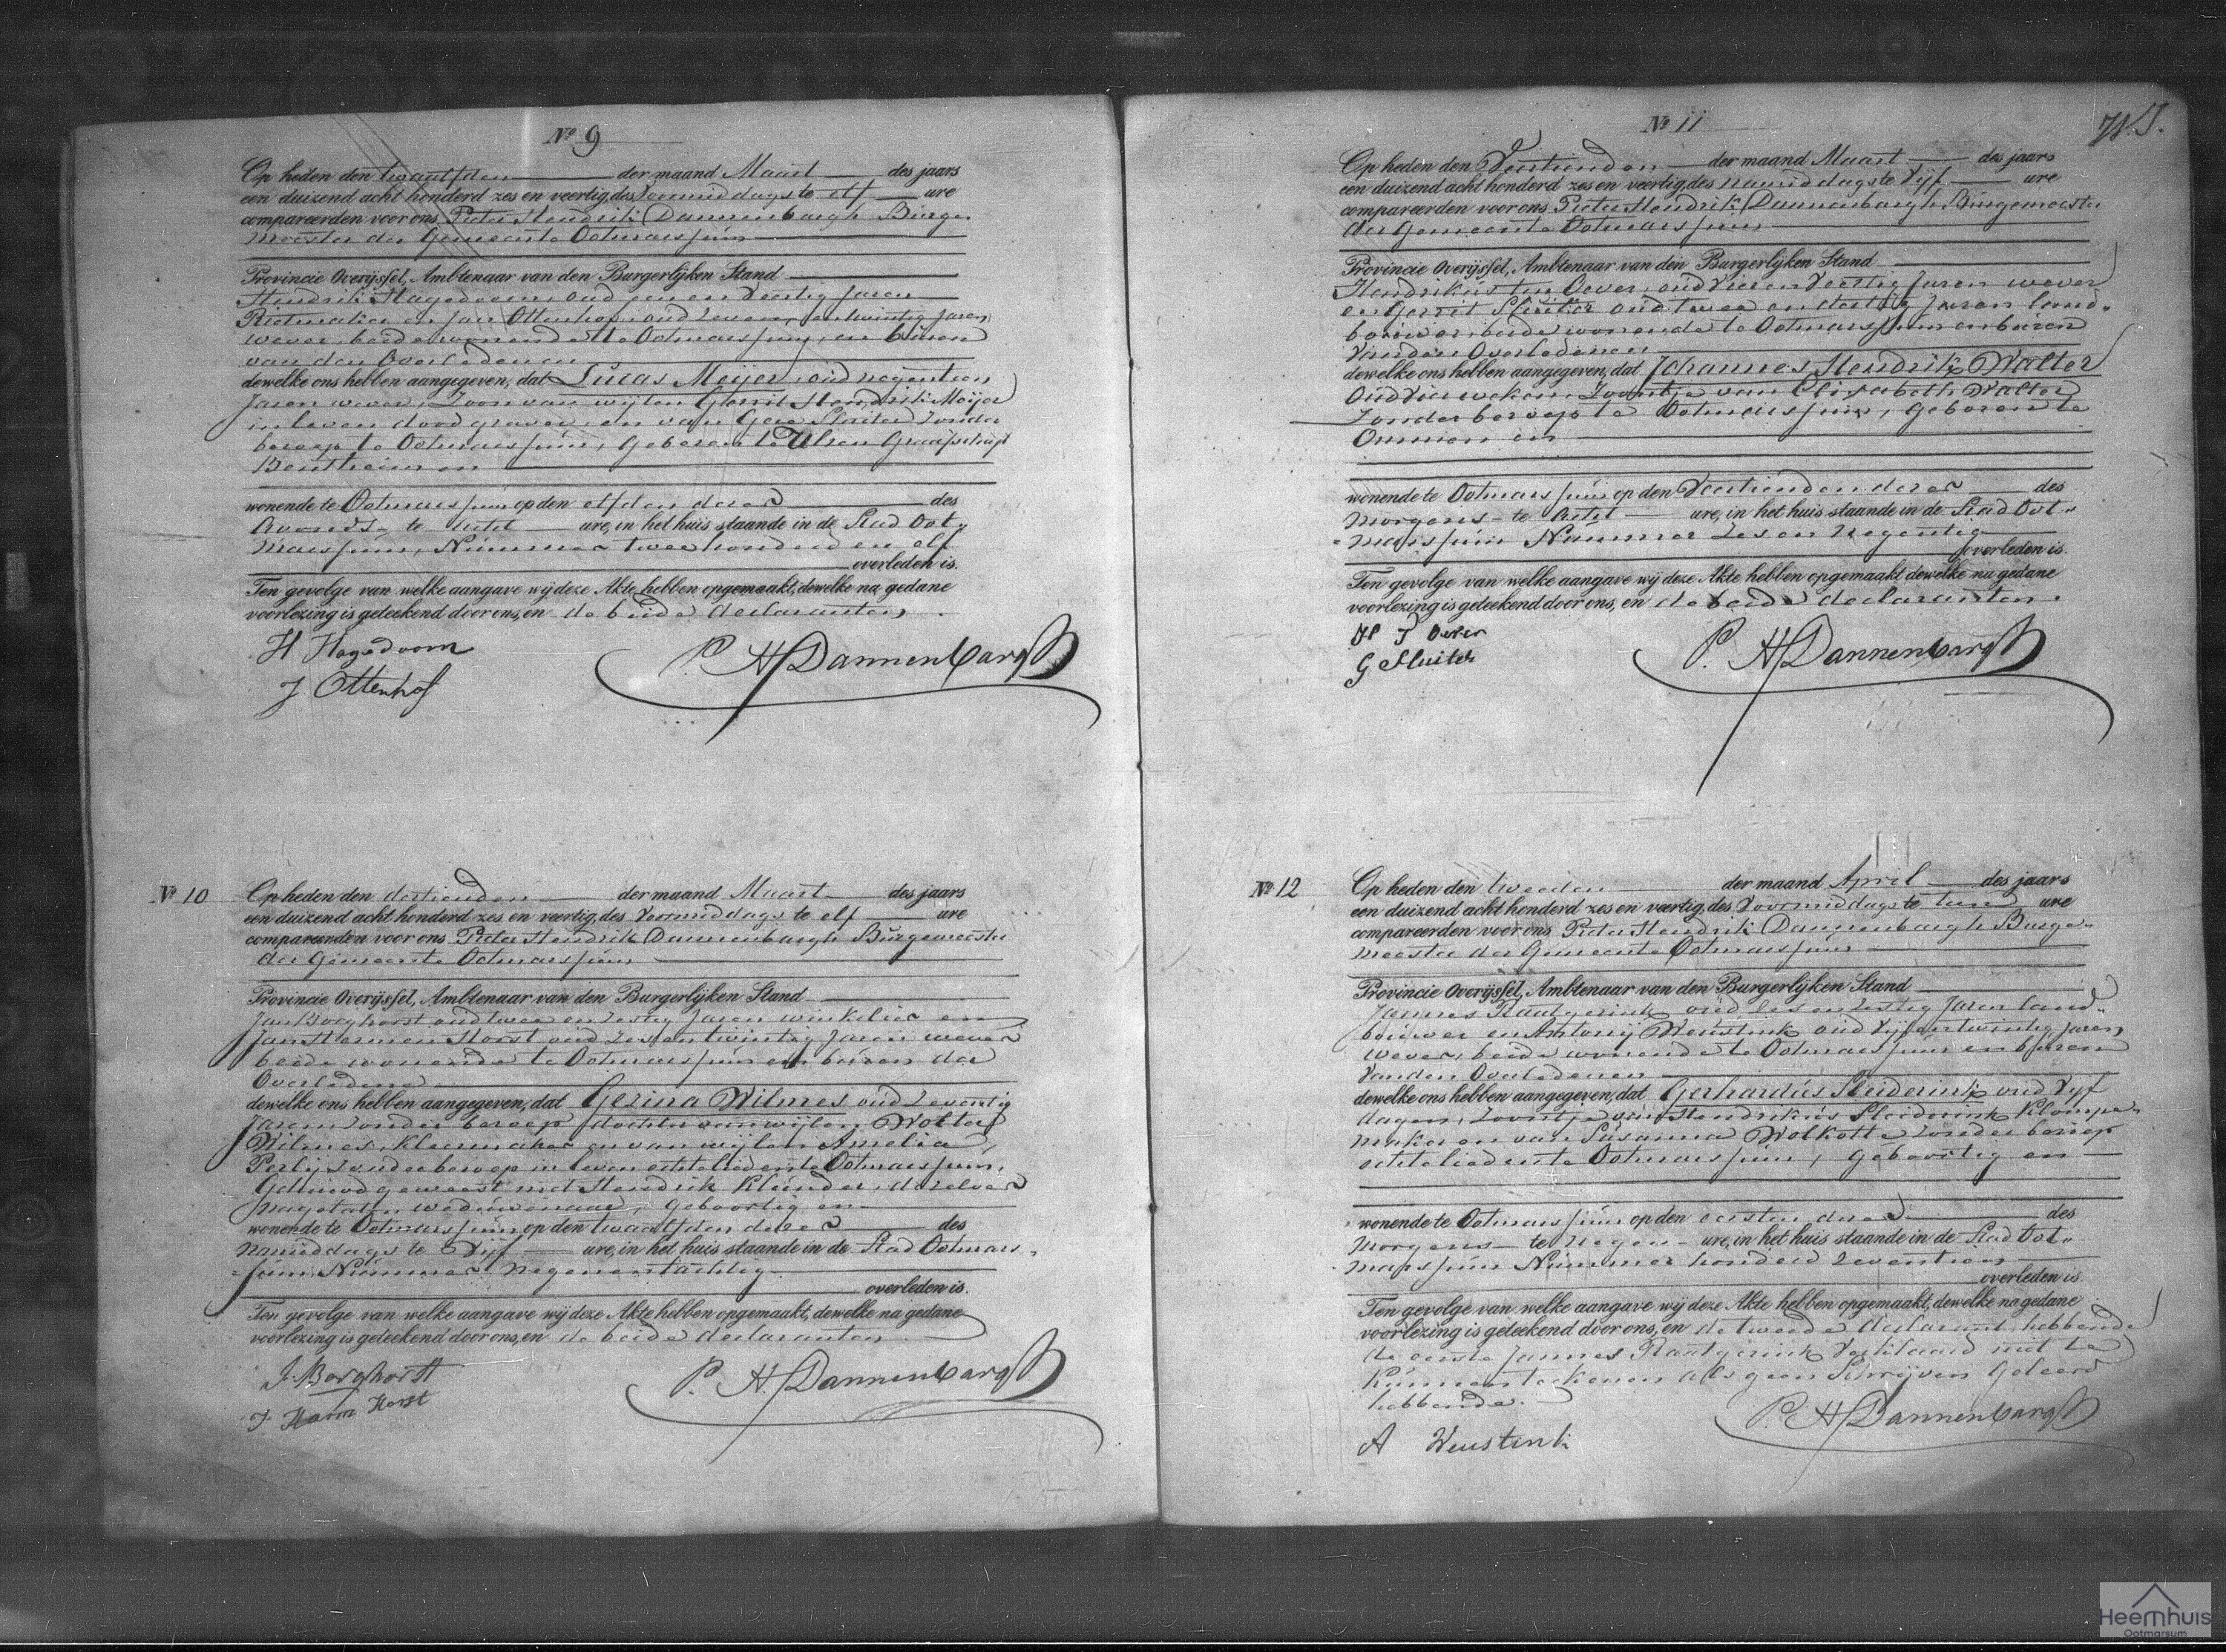 Nº 9
Op heden den twaalfden der maand Maart des jaars
een duizend acht honderd zes en veertig, des voormiddags te elf ure
compareerden voor ons Pieter Hendrik Dannenbargh Burge-
meester der Gemeente Ootmarssum
Provincie Overijssel, Ambtenaar van den Burgerlijken Stand
Hendrik Hagedoorn, oud een en veertig Jaren
Rietmaker en Jan Ottenhof oud zeven en twintig Jaren,
wever, beide wonende te Ootmarssum, en buren
van den Overledenen
dewelke ons hebben aangegeven, dat Lucas Meijer, oud negentien
Jaren wever, Zoon van wijlen Gerrit Hendrik Meijer
in leven doodgraver, en van Gese Sluiter zonder
beroep te Ootmarssum, geboren te Ulsen Graafschap
Bentheim en
wonende te Ootmarssum op den elfden dezer des
Avonds te acht ure, in het huis staande in de Stad Oot-
marssum, Nummer twee honderd en elf
overleden is.
Ten gevolge van welke aangave wij deze Akte hebben opgemaakt, dewelke na gedane
voorlezing is geteekend door ons, en de beide declaranten,
H Hagedoorn
J Ottenhof
P. H Dannenbargh
Nº 10
Op heden den dertienden der maand Maart des jaars
een duizend acht honderd zes en veertig, des Voormiddags te elf ure
compareerden voor ons Pieter Hendrik Dannenbargh Burgemeester
der Gemeente Ootmarssum
Provincie Overijssel, Ambtenaar van den Burgerlijken Stand
Jan Borghorst oud twee en zestig Jaren winkelier en
Jan Harmen Horst oud zes en twintig Jaren wever
beide wonende te Ootmarssum en buren der
Overledene
dewelke ons hebben aangegeven, dat Gezina Wilmes oud zeventig
Jaren zonder beroep dochter van wijlen Wolter
Wilmes, kleermaker en van wijlen Amelia
zonder beroep in leven echtelieden te Ootmarssum,
gehuwd geweest met Hendrik Klunder, derzelver
nagelaten weduwenaar, geboortig en
wonende te Ootmarssum op den twaalfden dezer des
namiddags te Vijf ure, in het huis staande in de Stad Ootmars-
sum, Nummer negenentachtig
overleden is.
Ten gevolge van welke aangave wij deze Akte hebben opgemaakt, dewelke na gedane
voorlezing is geteekend door ons, en de beide declaranten
J. Borghorst
J Harm Horst
P. H. Dannenbargh
Nº 11
Op heden den Veertienden der maand Maart des jaars
een duizend acht honderd zes en veertig, des namiddags te Vijf ure
compareerden voor ons Pieter Hendrik Dannenbargh Burgemeester
der Gemeente Ootmarssum
Provincie Overijssel, Ambtenaar van den Burgerlijken Stand
Hendrikus ten Oever, oud Vier en Veertig Jaren wever
en Gerrit Sluiter oud twee en dertig Jaren land-
bouwer, beide wonende te Ootmarssum en buren
van den Overledenen
dewelke ons hebben aangegeven, dat Johannes Hendrik Walter
Oud Vier weken, Zoontje van Elisabeth Walter
Zonder beroep te Ootmarssum, geboren te
Ommen en
wonende te Ootmarssum op den Veertienden dezer des
morgens te acht ure, in het huis staande in de Stad Oot-
marssum Nummer Zes en negentig
overleden is.
Ten gevolge van welke aangave wij deze Akte hebben opgemaakt dewelke na gedane
voorlezing is geteekend door ons, en de beide declaranten.
H T Oever
G Sluiter
P. H Dannenbargh
Nº 12
Op heden den tweeden der maand April des jaars
een duizend acht honderd zes en veertig, des Voormiddags te tien ure
compareerden voor ons Pieter Hendrik Dannenbargh Burge-
meester der Gemeente Ootmarssum
Provincie Overijssel, Ambtenaar van den Burgerlijken Stand
Jannes oud zes en zestig Jaren land-
bouwer en Antonij Weustink oud Vijfentwintig Jaren
wever, beide wonende te Ootmarssum en buren
van den Overledenen
dewelke ons hebben aangegeven, dat Gerhardus Sleiderink oud Vijf
dagen, Zoontje van Hendrikus Sleiderink klompe-
maker en van Susanna Wolkotte zonder beroep
echtelieden te Ootmarssum, geboortig en
wonende te Ootmarssum op den eersten dezer des
morgens te negen ure, in het huis staande in de Stad Oot-
marssum Nummer honderd zeventien
overleden is.
Ten gevolge van welke aangave wij deze Akte hebben opgemaakt, dewelke na gedane
voorlezing is geteekend door ons, en de tweede declarant, hebbende
de eerste Jannes verklaard niet te
kunnen teekenen als geen Schrijven geleerd
hebbende.
A Weustink
P. H Dannenbargh
Heemhuis
Ootmarsum